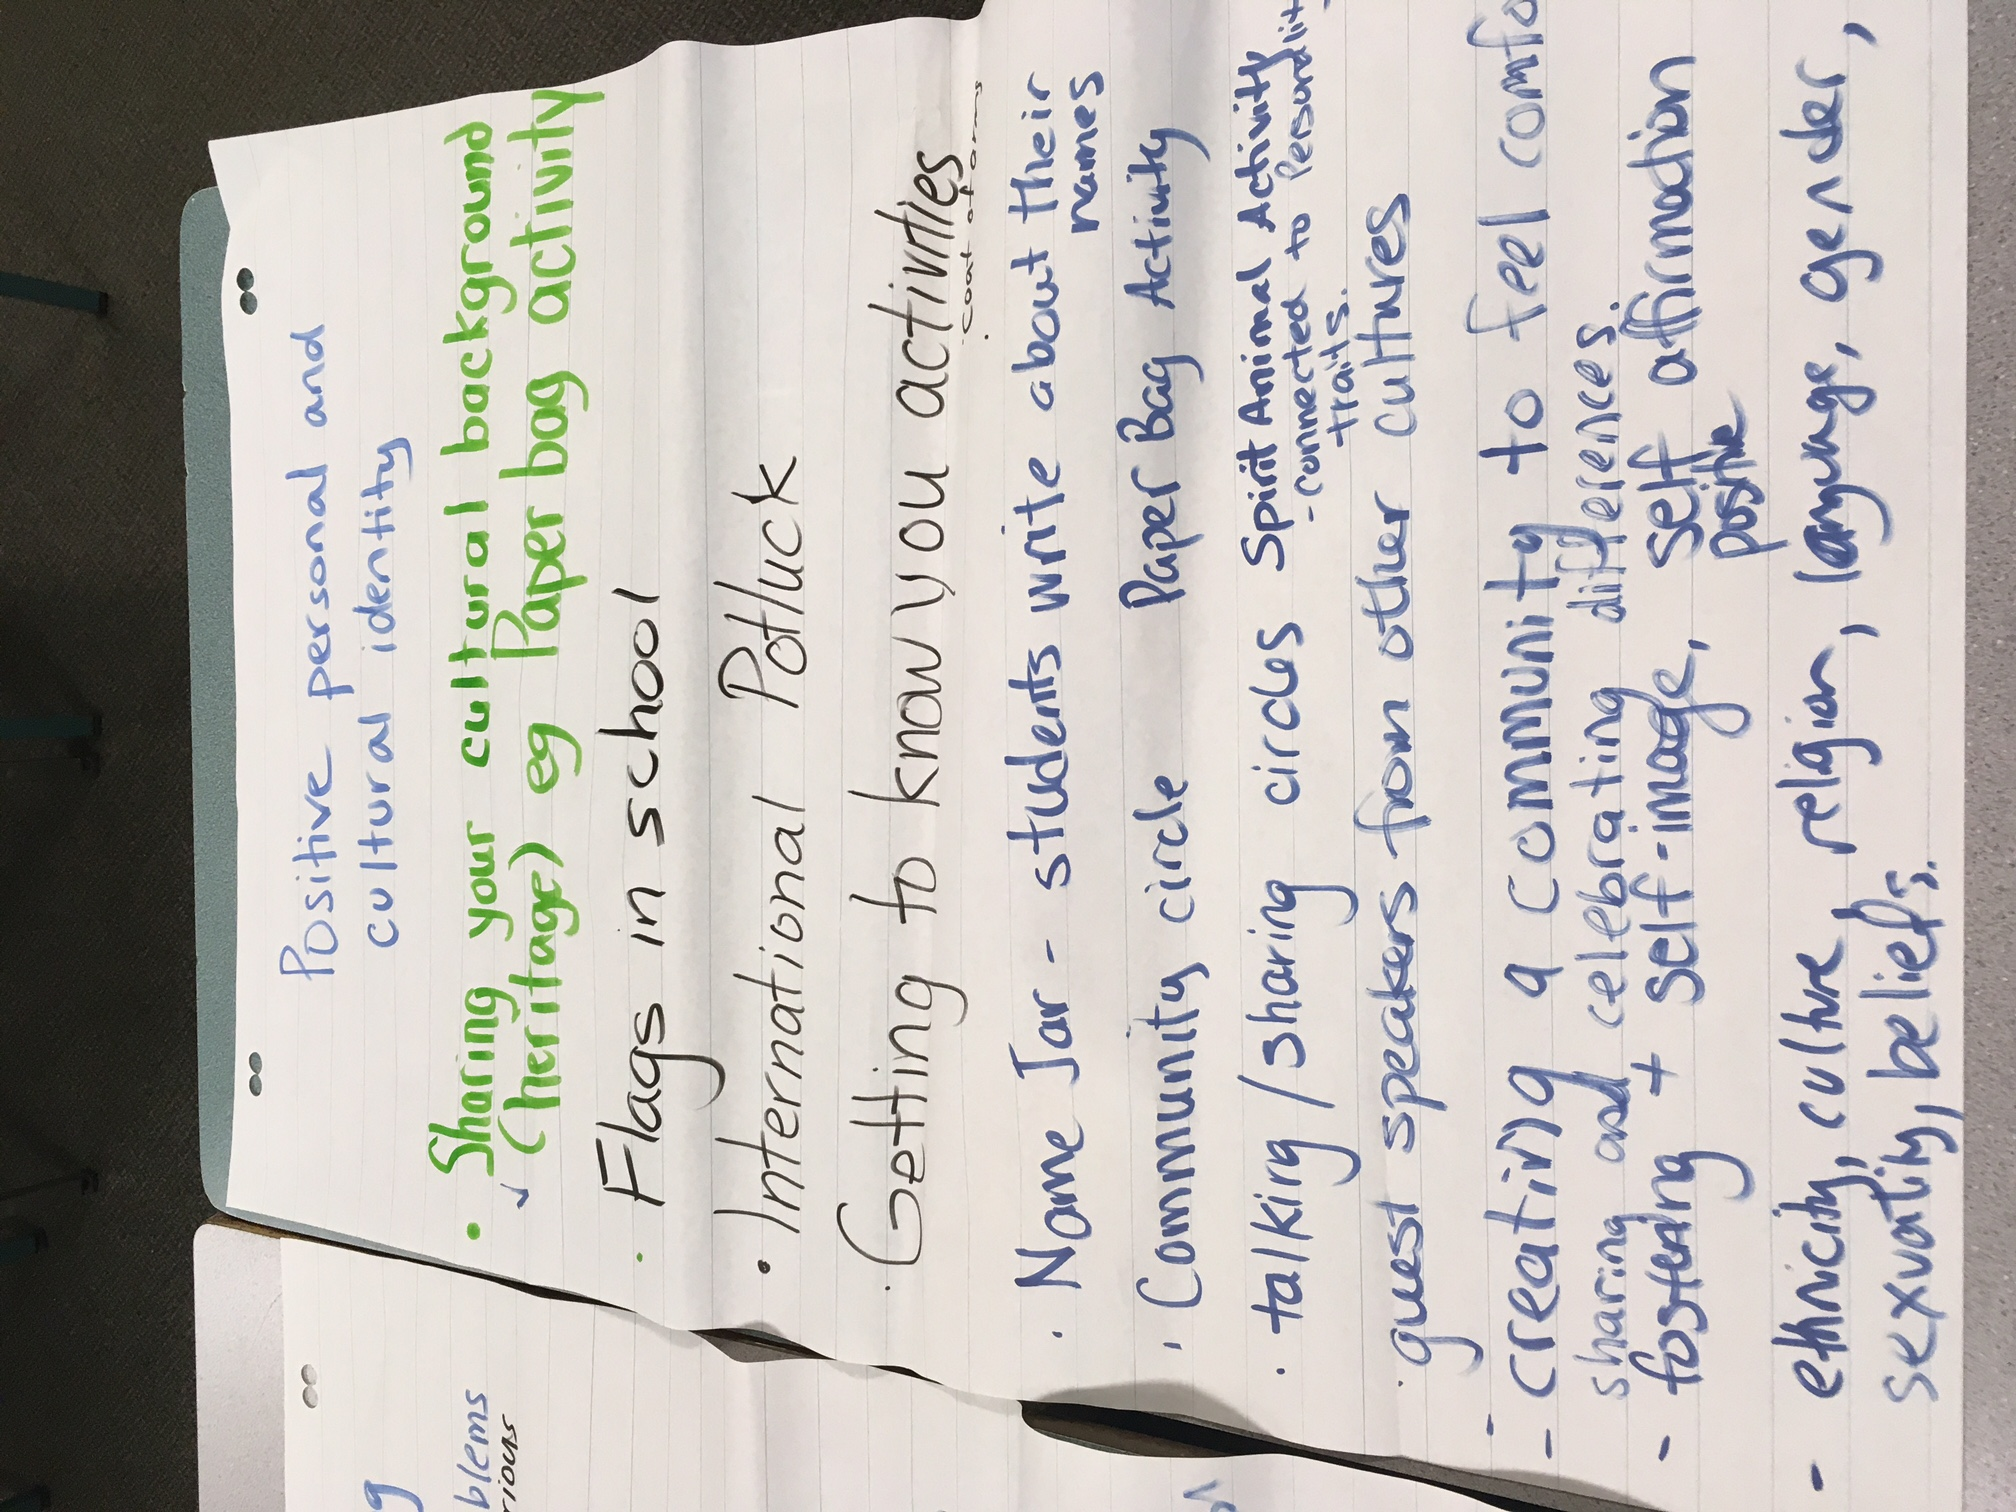 Positive personal and
cultural identity
• Sharing your cultural background
(heritage) eg Paper bag activity
• Flags in school
• International Potluck
· Getting to know you activities
· coat of arms
· Name Jar - students write about their
names
· Community circle Paper Bag Activity
· talking / sharing circles Spirit Animal Activity
- connected to Personality
traits.
· guest speakers from other cultures
- creating a community to feel
sharing and celebrating differences.
- fostering + self-image, self affirmation
positive
- ethnicity, culture, religion, language, gender,
sexuality, beliefs.